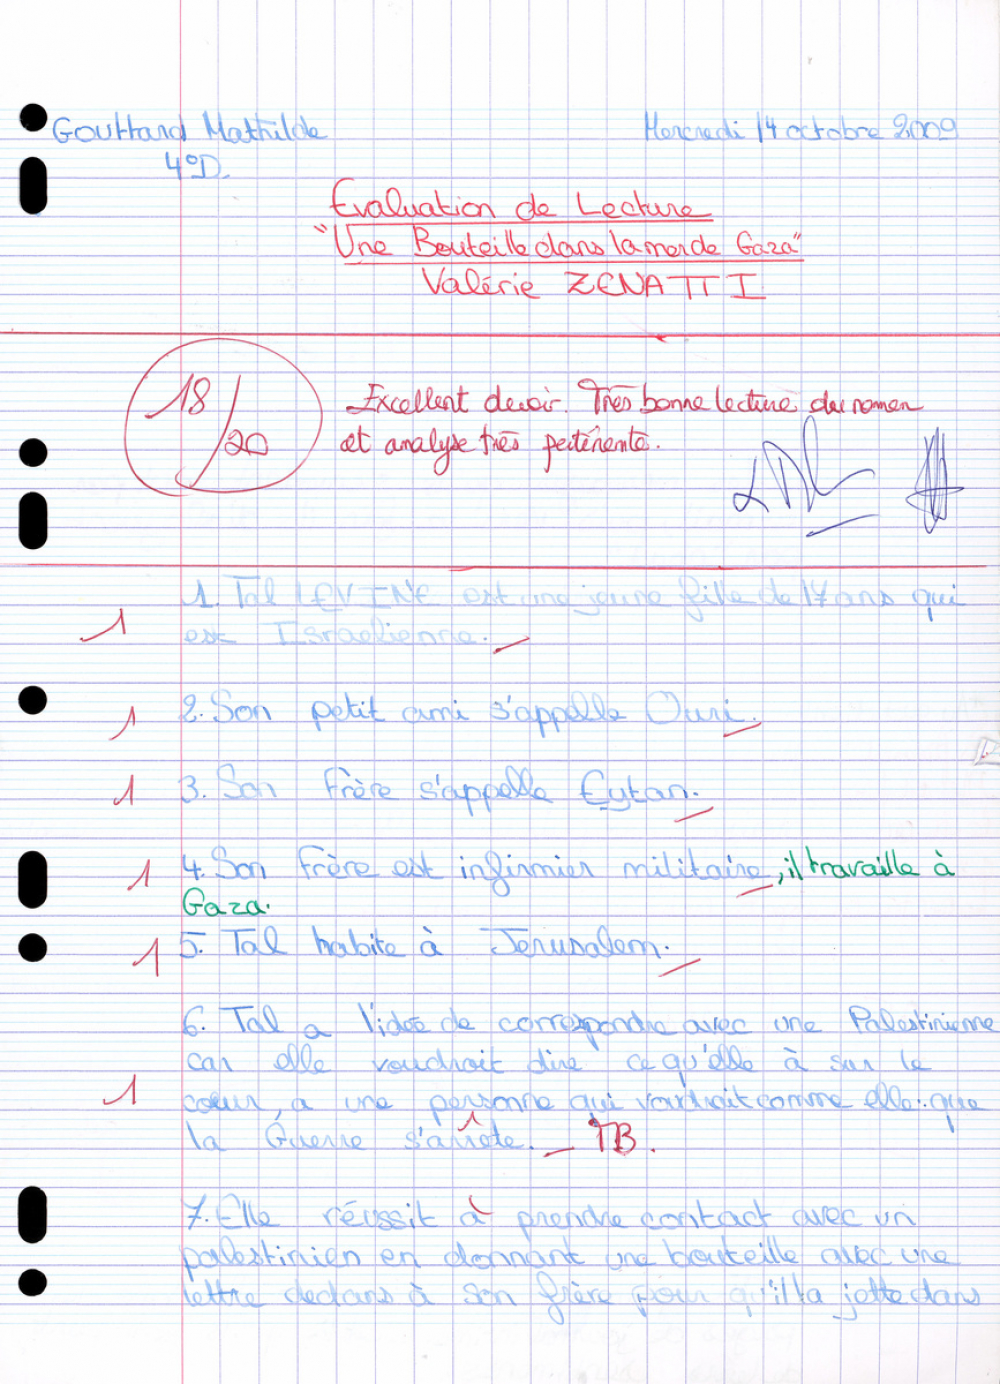 Gouttard Mathilde
Mercredi 14 octobre 2009
4°D.
Evaluation de Lecture
"Une Bouteille dans la mer de Gaza"
Valérie ZENATTI
18/20
Excellent devoir. Très bonne lecture du roman
et analyse très pertinente.
1. Tal LEVINE est une jeune fille de 17 ans qui
1 est Israelienne.
1 2. Son petit ami s'appelle Ouri.
1 3. Son frère s'appelle Eytan.
1 4. Son frère est infirmier militaire, il travaille à
Gaza.
1 5. Tal habite à Jerusalem.
6. Tal a l'idée de correspondre avec une Palestinienne
car elle voudrait dire ce qu'elle à sur le
1 cœur, a une personne qui voudrait comme elle que
la Guerre s'arrête. TB.
7. Elle réussit à prendre contact avec un
palestinien en donnant une bouteille avec une
lettre dedans à son frère pour qu'il la jette dans